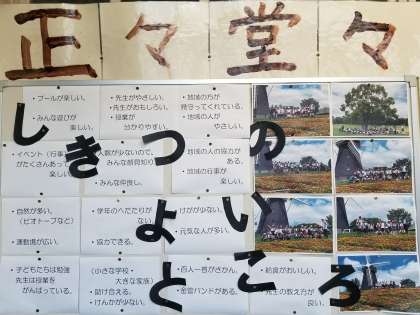 正々堂々
しきつの
よいところ
・プールが楽しい。
・みんな遊びが
楽しい。
・先生がやさしい。
・先生がおもしろい。
・授業が
分かりやすい。
・地域の方が
見守ってくれている。
・地域の人が
やさしい。
・イベント(行事
がたくさんあって
楽しい
人数が少ないので、
みんな顔見知り
・みんな仲良し。
・地域の人の協力が
ある。
・地域の行事が
楽しい。
・自然が多い。
(ビオトープなど)
・運動場が広い。
・学年のへだたりが
ない
・協力できる。
けがが少ない。
・元気な人が多い。
・子どもたちは勉強
先生は授業を
がんばっている。
(小さな学校・
大きな家族)
・助け合える。
・けんかが少ない。
・百人一首がさかん。
・金管バンドがある。
・給食がおいしい。
・先生の教え方が
良い。